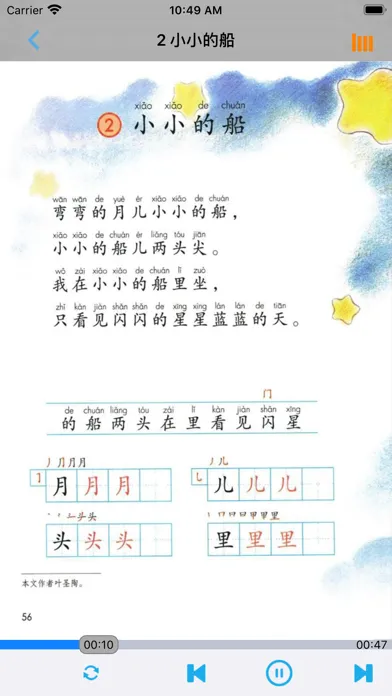 Carrier 10:49 AM
2 小小的船
xiǎo xiǎo de chuán
2 小小的船
wān wān de yuè ér xiǎo xiǎo de chuán
弯弯的月儿小小的船，
xiǎo xiǎo de chuán ér liǎng tóu jiān
小小的船儿两头尖。
wǒ zài xiǎo xiǎo de chuán lǐ zuò
我在小小的船里坐，
zhǐ kàn jiàn shǎn shǎn de xīng xīng lán lán de tiān
只看见闪闪的星星蓝蓝的天。
门
de chuán liǎng tóu zài lǐ kàn jiàn shǎn xīng
的船两头在里看见闪星
丿 ⺆ 月 月
㇆ 月 月 月
丿 儿
乚 儿 儿 儿
头 头
头 头 头
丨 冂 日 日 甲 甲 里
里 里 里
本文作者叶圣陶。
56
00:10
00:47